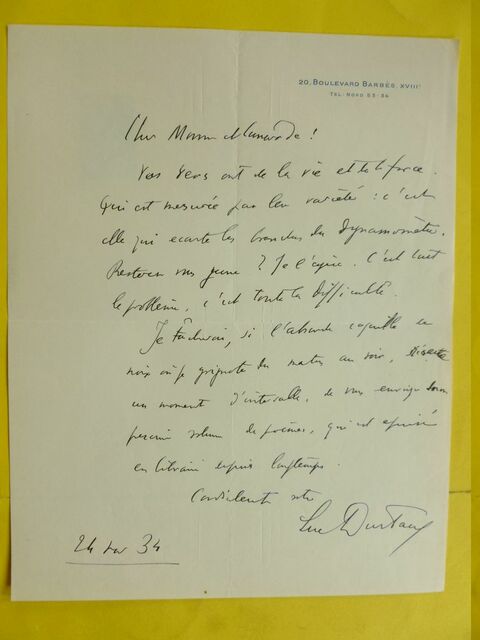 20, Boulevard Barbès, XVIIIe
Tel. Nord 53-84
Cher Monsieur
Vos vers ont de la vie et de la force.
Qui est mesurée par leur variété : c'est
elle qui écarte les branches du dynamomètre.
Resterez vous jeune ? Je l'espère. C'est tout
le problème, c'est toute la difficulté.
Je tâcherai, si l'absurde coquille de
noix où je grignote du matin au soir,
un moment d'intervalle, de vous envoyer
premier volume de poèmes, qui est épuisé
en librairie depuis longtemps.
Cordialement votre
Luc Durtain
24 34